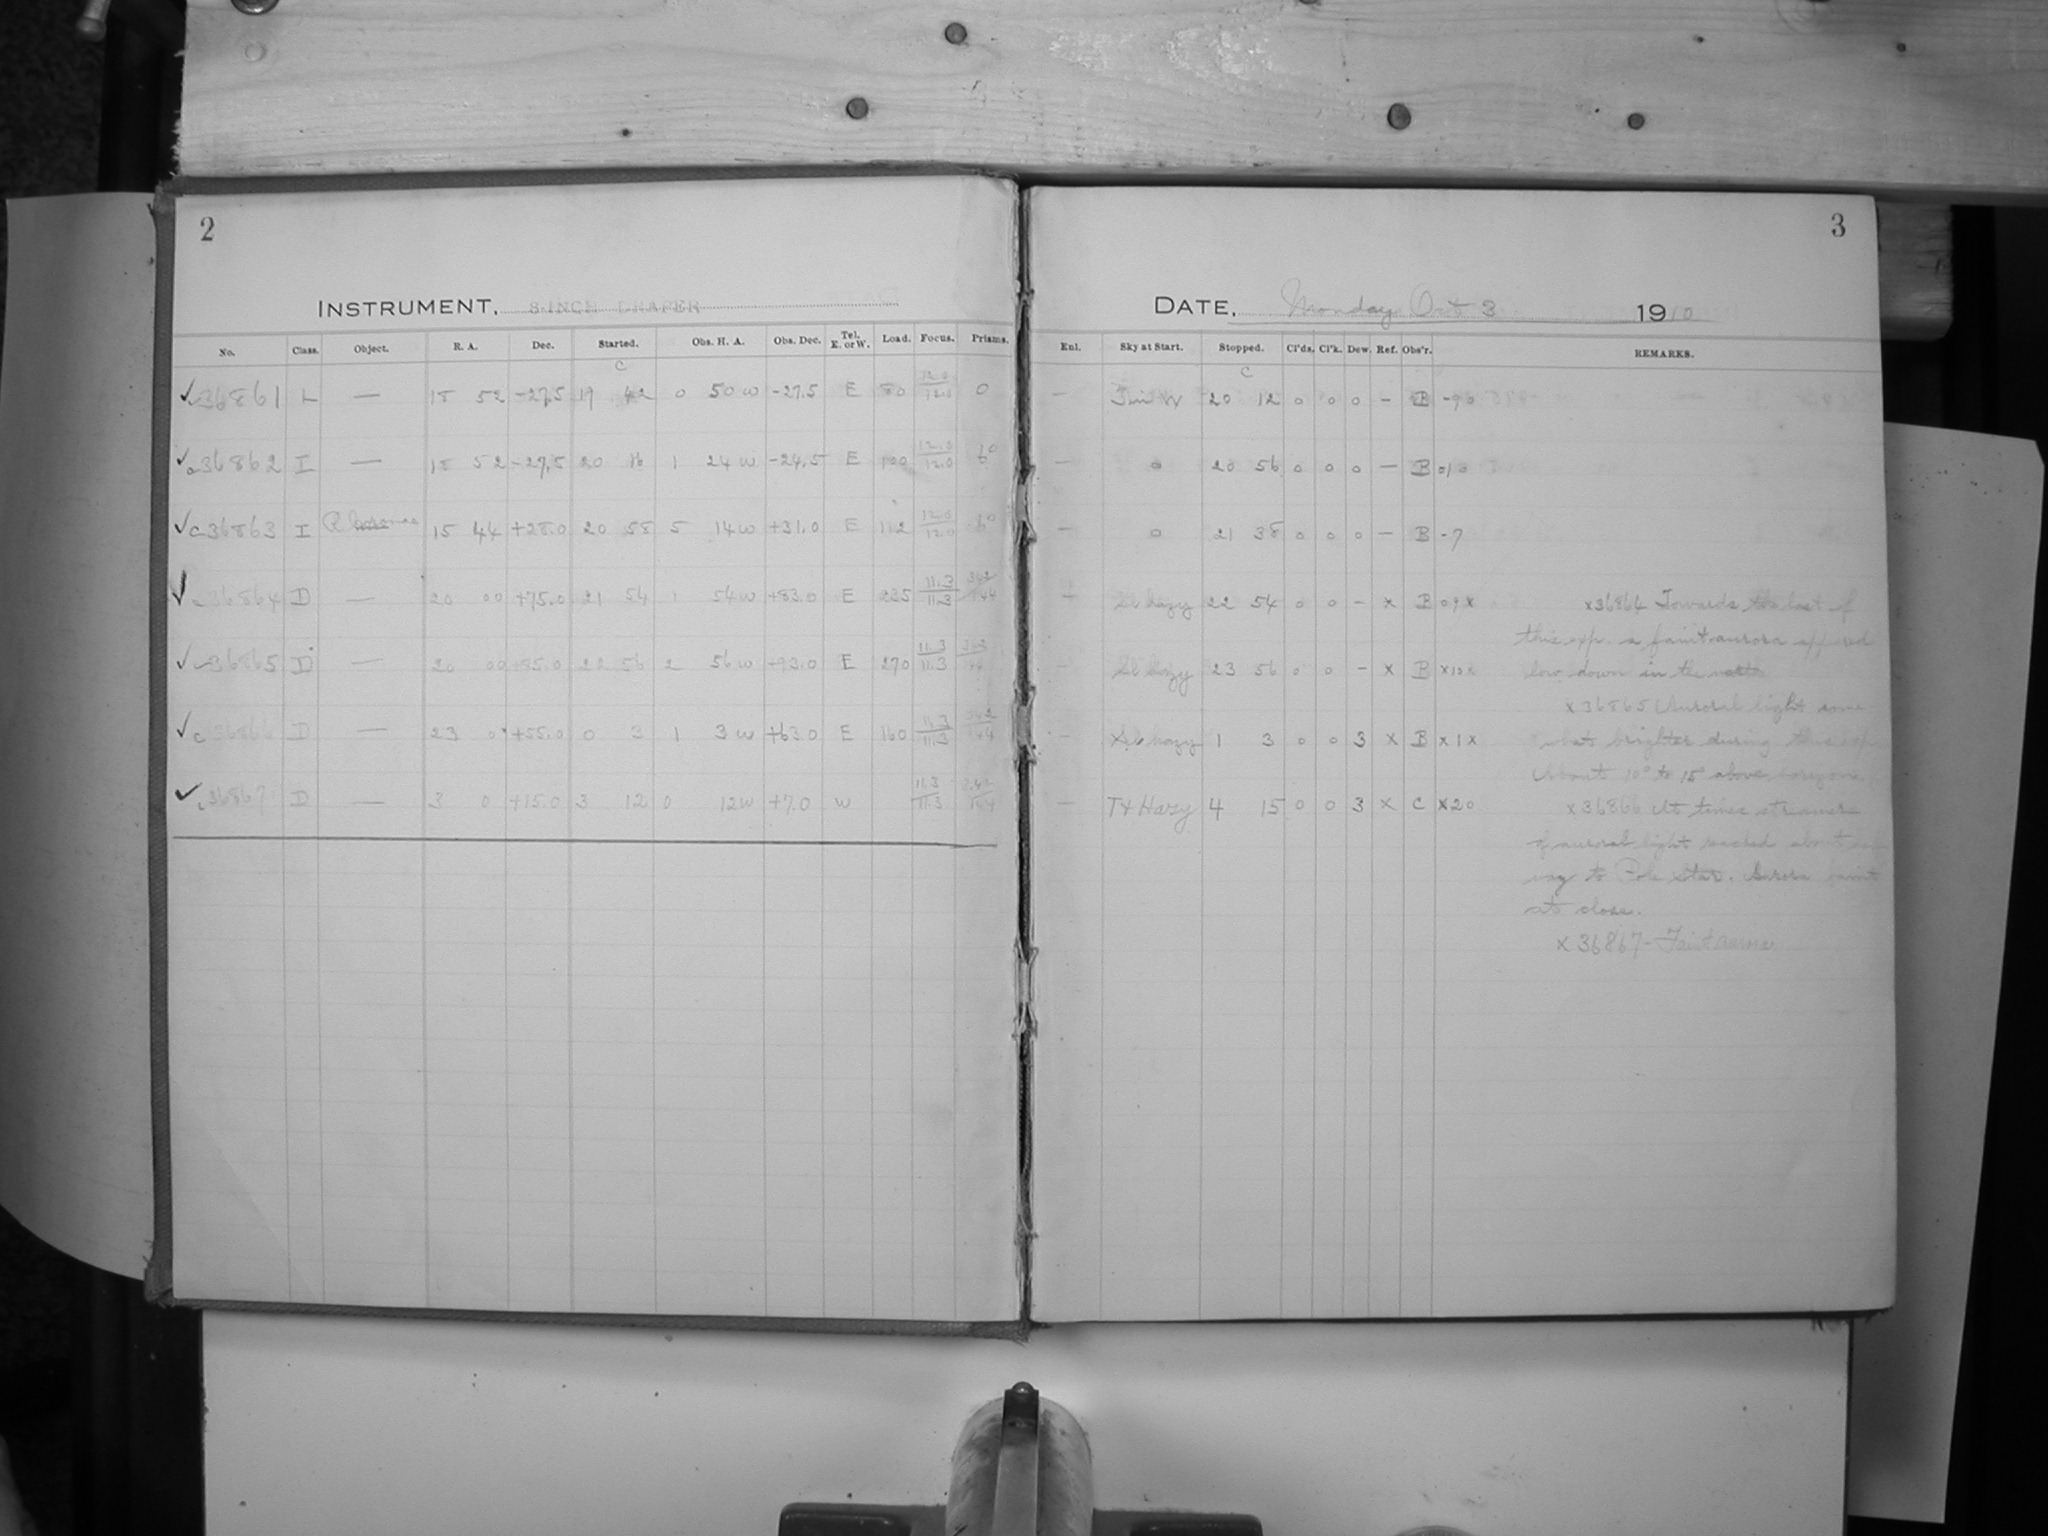 2
INSTRUMENT, 8-INCH DRAPER
No. Class. Object. R. A. Dec. Started. Obs. H. A. Obs. Dec. Tel. E. or W. Load. Focus. Prisms.
C
✓c36861 L — 15 52 -27.5 19 42 0 50 w -27.5 E 80 12.0/12.0 0
✓c36862 I — 15 52 -27.5 20 16 1 24 w -24.5 E 100 12.0/12.0 6°
✓c36863 I R 15 44 +28.0 20 58 5 14 w +31.0 E 112 12.0/12.0 6°
✓c36864 D — 20 00 +75.0 21 54 1 54 w +83.0 E 235 11.3/11.3
✓c36865 D — 20 00 +85.0 22 56 2 56 w +93.0 E 270 11.3/11.3
✓c36866 D — 23 0 +55.0 0 3 1 3 w +63.0 E 160 11.3/11.3
✓c36867 D — 3 0 +15.0 3 12 0 12 w +7.0 w 11.3/11.3
3
DATE, Monday Oct 3 1910
Enl. Sky at Start. Stopped. Cl'ds. Cl'k. Dew. Ref. Obs'r. REMARKS.
C
— 20 12 0 0 0 – B -90
— 0 20 56 0 0 0 — B 010
— 0 21 38 0 0 0 — B -7
Sl hazy 22 54 0 0 – x B 09x
— Sl hazy 23 56 0 0 – x B x10x
— Sl hazy 1 3 0 0 3 x B x1x
— Hazy 4 15 0 0 3 x C x20
x36864 Towards the last of
this exp. a faint aurora appeared
low down in the north
x36865 Auroral light some
what brighter during this exp
About 10° to 15° above horizon.
x36866 At times streamers
of auroral light reached about
way to Pole Star. Aurora faint
at close.
x 36867 - Faint aurora